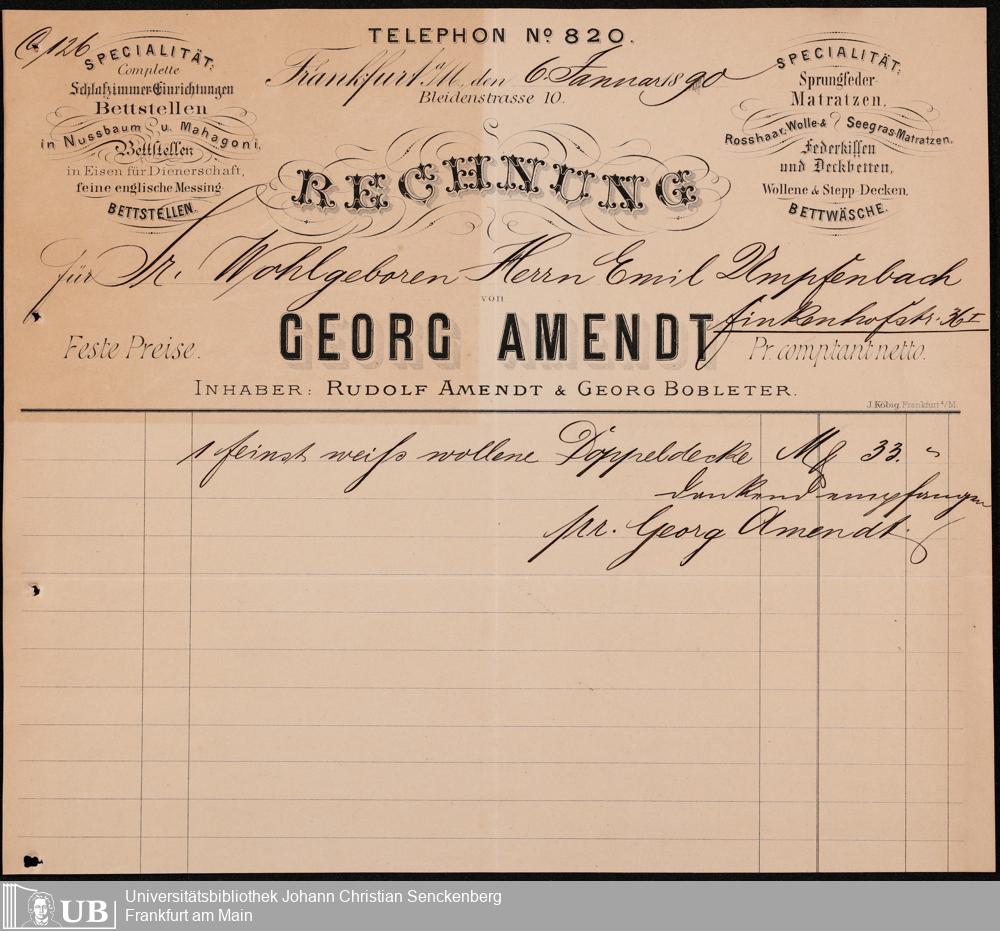 TELEPHON No 820.
126
SPECIALITÄT:
Complette
Schlafzimmer-Einrichtungen
Bettstellen
in Nussbaum u. Mahagoni,
Bettstellen
in Eisen für Dienerschaft,
feine englische Messing
BETTSTELLEN.
Frankfurt a/M., den 6. Januar 1890
Bleidenstrasse 10.
SPECIALITÄT:
Sprungfeder-
Matratzen,
Rosshaar, Wolle- & Seegras-Matratzen,
Federkissen
und Deckbetten,
Wollene & Stepp-Decken.
BETTWÄSCHE.
RECHNUNG
für Sr. Wohlgeboren Herrn Emil Umpfenbach
von
Finkenhofstr. 36 I
GEORG AMENDT
Feste Preise.
Pr. comptant netto.
INHABER: RUDOLF AMENDT & GEORG BOBLETER.
J. Köbig, Frankfurt a/M.
1 feinst weiß wollene Doppeldecke M 33. "
dankend empfangen
pr. Georg Amendt.
UB
Universitätsbibliothek Johann Christian Senckenberg
Frankfurt am Main